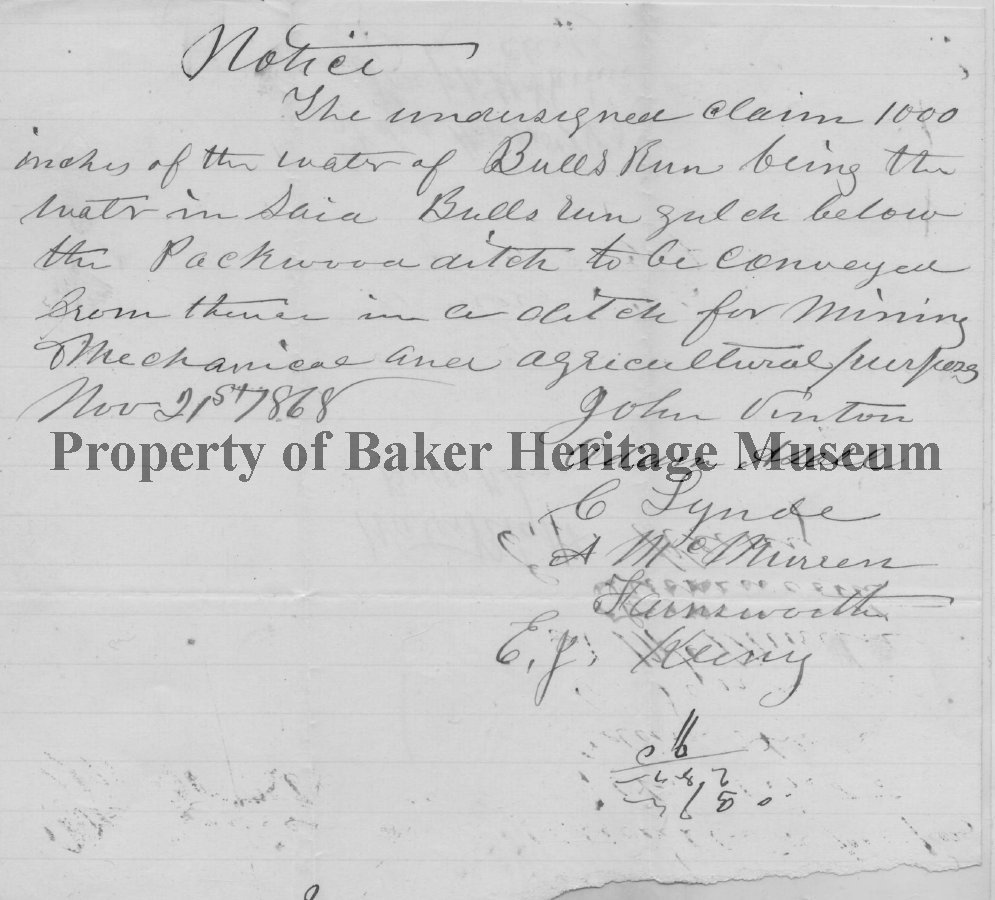 Notice
The undersigned claim 1000
inches of the water of Bulls Run being the
water in said Bulls run gulch below
the Packwood ditch to be conveyed
from thence in a ditch for Mining
Mechanical and agricultural purposes
Nov 21st 1868
John Vinton
Property of Baker Heritage Museum
Adam
C Lynde
A McMurren
Farnsworth
E. J.